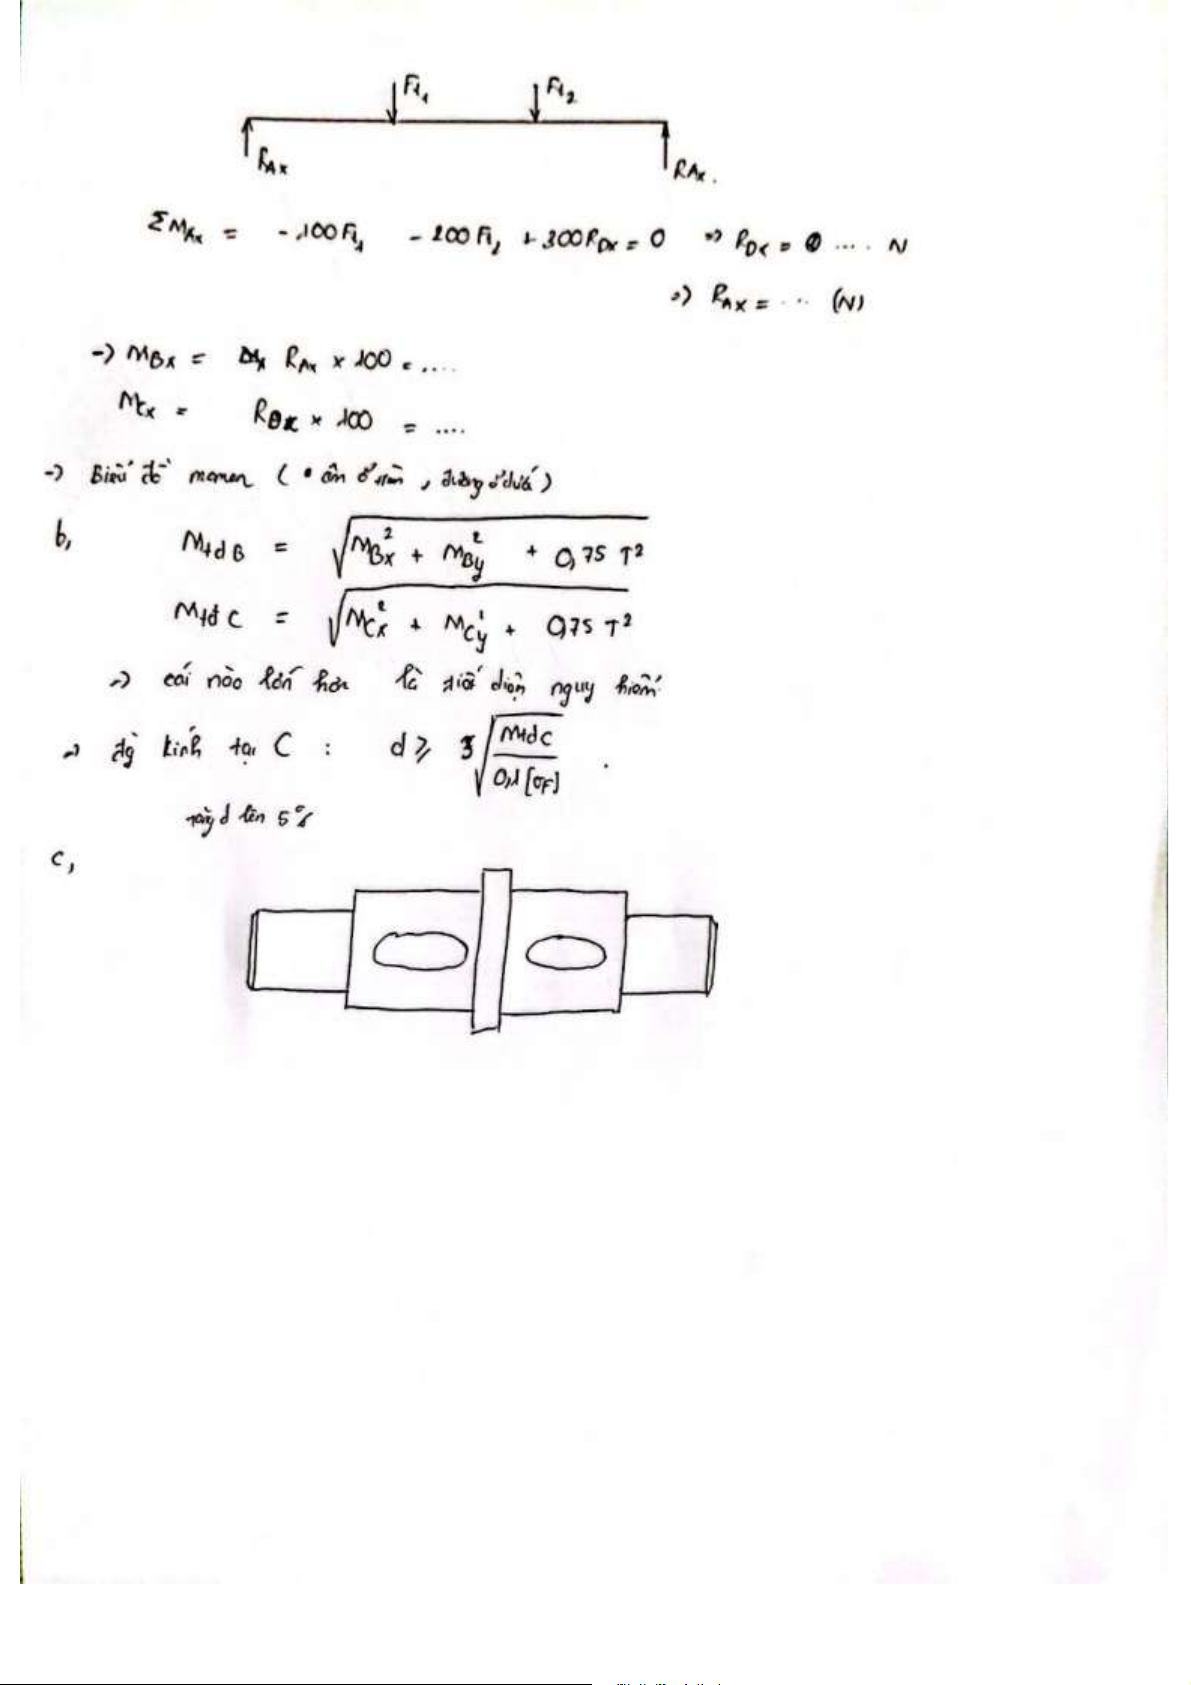 Ft₁ Ft₂
RAx RAx.
ΣMAx = -100Ft₁ - 200Ft₂ + 300RDx = 0 => RDx = .... N
=> RAx = ... (N)
-> MBx = RAx × 100 = ....
MCx = × 100 = ....
-> Biểu đồ momen ( âm ở trên, dương ở dưới )
b, Mtđ B = √(MBx² + MBy² + 0,75 T²)
Mtđ C = √(MCx² + MCy² + 0,75 T²)
-> cái nào lớn hơn là tiết diện nguy hiểm
-> đg kính tại C : d ≥ ³√(Mtđ C / 0,1[σF]) .
tăng d lên 5%
c,